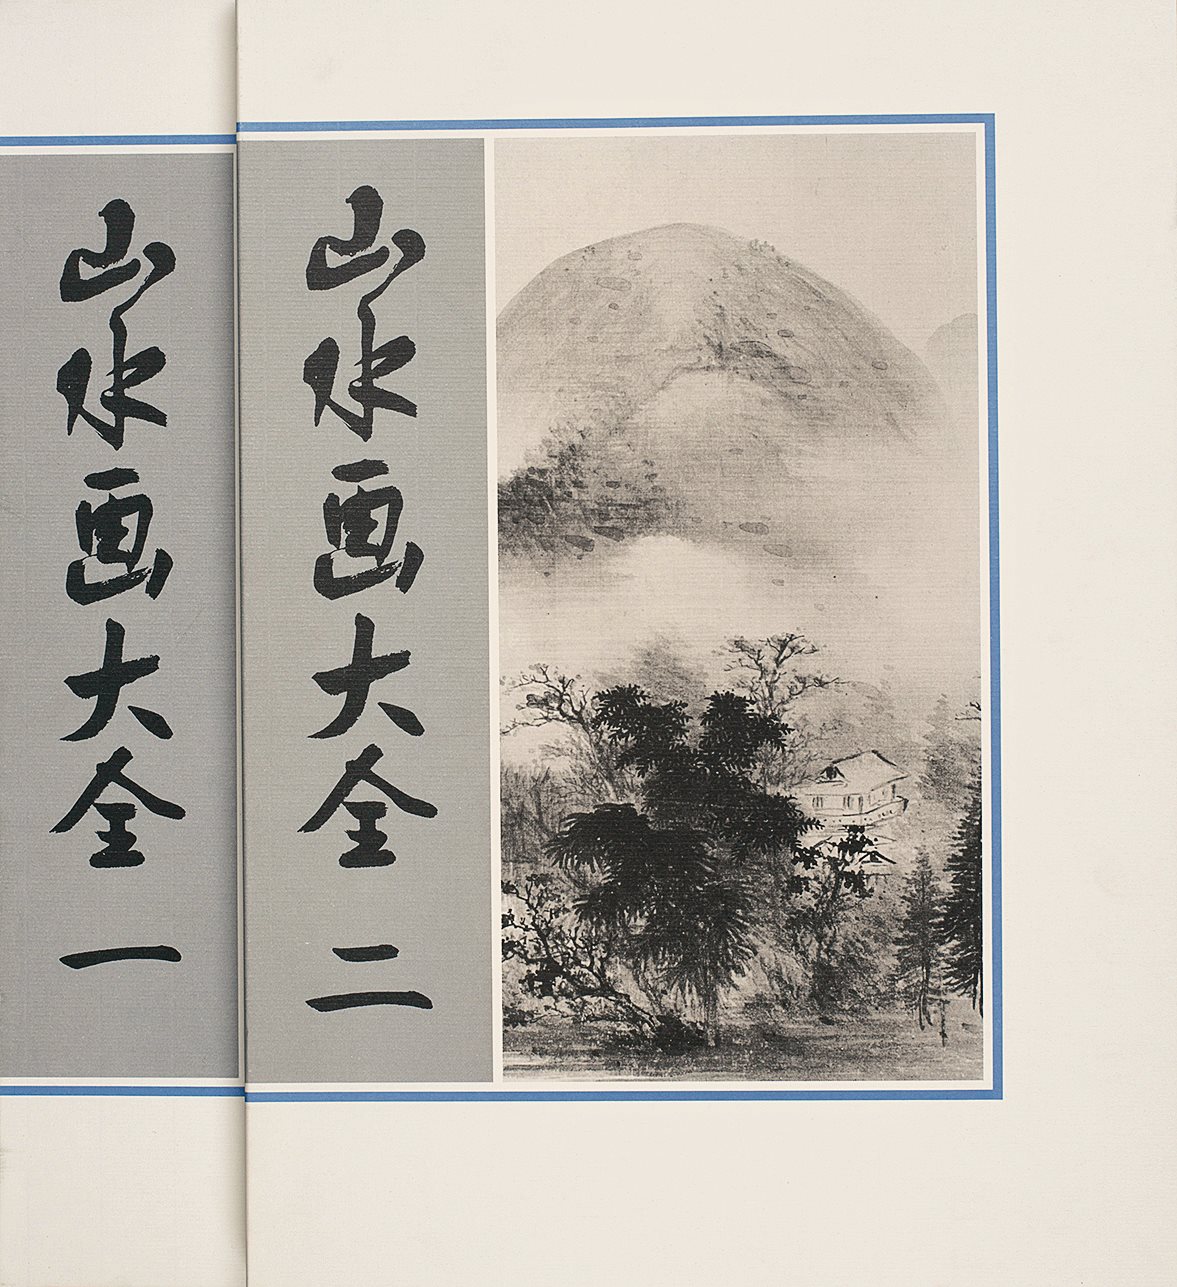 山水画大全 一
山水画大全 二